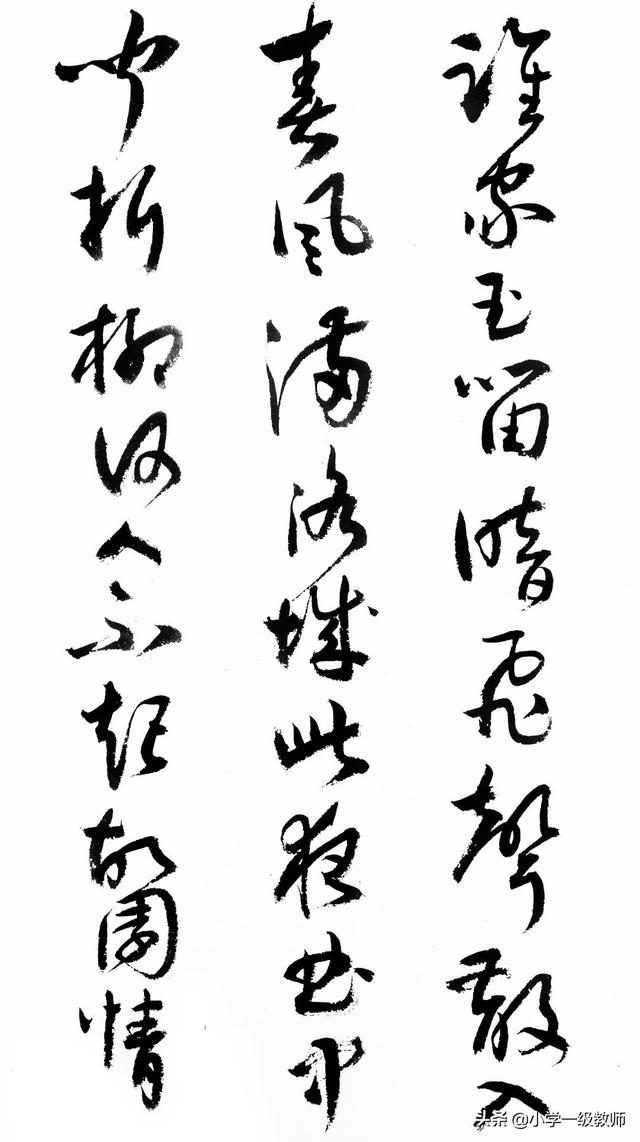 誰家玉笛暗飛聲散入
春風滿洛城此夜曲中
聞折柳何人不起故園情
头条 @小学一级教师